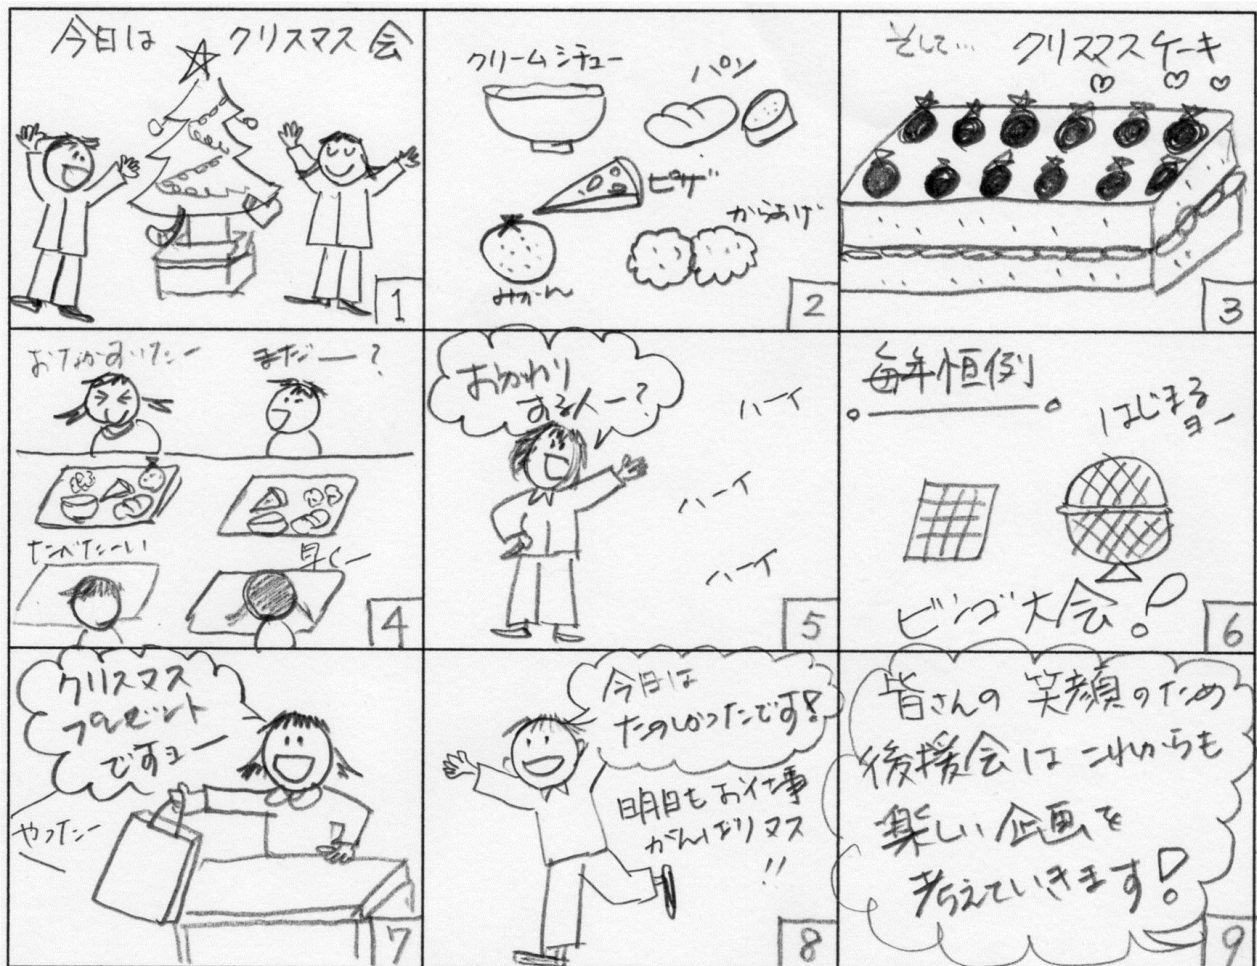 今日は クリスマス会
1
クリームシチュー
パン
ピザ
からあげ
みかん
2
そして… クリスマスケーキ
3
おなかすいたー
まだー？
たべたーい
早くー
4
おかわり
する人ー？
ハーイ
ハーイ
ハーイ
5
毎年恒例
はじまる
ヨー
ビンゴ大会！
6
クリスマス
プレゼント
ですョー
やったー
7
今日は
たのしかったです！
明日もお仕事
がんばりマス
!!
8
皆さんの笑顔のため
後援会はこれからも
楽しい企画を
考えていきます！
9